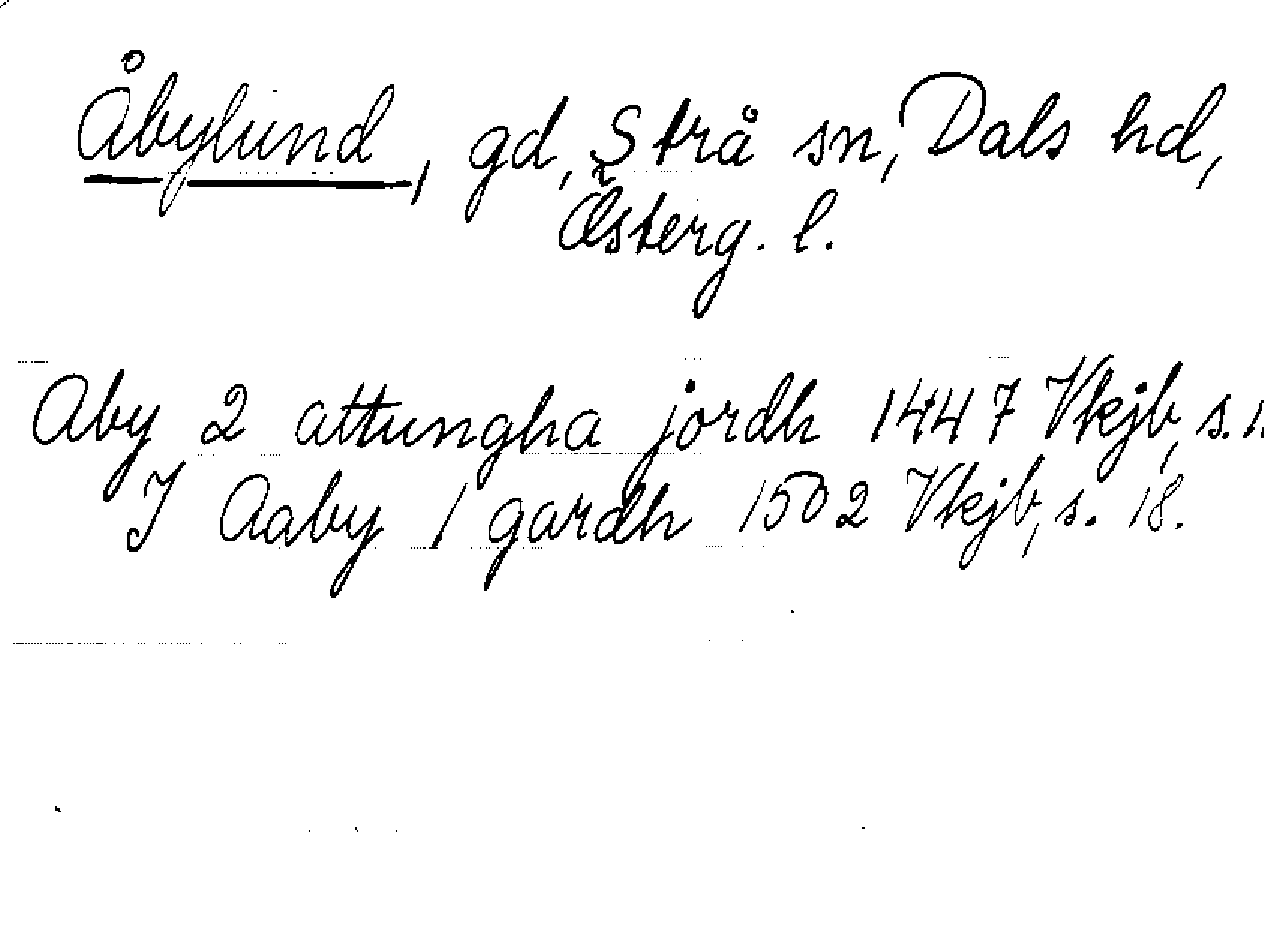 Åbylund, gd, Strå sn, Dals hd,
Österg. l.
Aby 2 attungha jordh 1447 Vkjb, s. 1.
I Aaby 1 gardh 1502 Vkjb, s. 18.